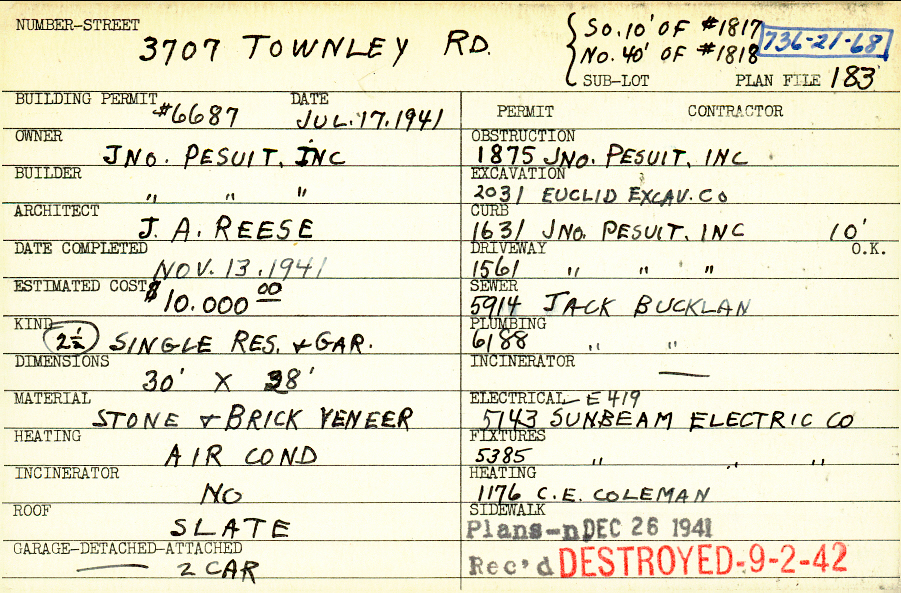 NUMBER-STREET
3707 TOWNLEY RD.
SO. 10' OF #1817
NO. 40' OF #1818
736-21-68
SUB-LOT PLAN FILE 183
BUILDING PERMIT DATE
#6687 JUL. 17. 1941
OWNER
JNO. PESUIT, INC
BUILDER
" " "
ARCHITECT
J. A. REESE
DATE COMPLETED
NOV. 13. 1941
ESTIMATED COST
$10.000 00
KIND
2½ SINGLE RES. & GAR.
DIMENSIONS
30' X 38'
MATERIAL
STONE & BRICK VENEER
HEATING
AIR COND
INCINERATOR
NO
ROOF
SLATE
GARAGE-DETACHED-ATTACHED
2 CAR
PERMIT CONTRACTOR
OBSTRUCTION
1875 JNO. PESUIT, INC
EXCAVATION
2031 EUCLID EXCAV. CO
CURB
1631 JNO. PESUIT, INC 10'
DRIVEWAY O.K.
1561 " " "
SEWER
5914 JACK BUCKLAN
PLUMBING
6188 " "
INCINERATOR
—
ELECTRICAL - E419
5743 SUNBEAM ELECTRIC CO
FIXTURES
5385 " " "
HEATING
1176 C.E. COLEMAN
SIDEWALK
Plans-n DEC 26 1941
Rec'd DESTROYED-9-2-42